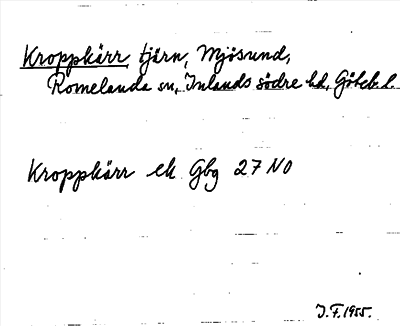 Kroppkärr, tjärn, Mjösund,
Romelanda sn, Inlands södre hd, Göteb. l.
Kroppkärr ek Gbg 27 NO
J.F. 1955.